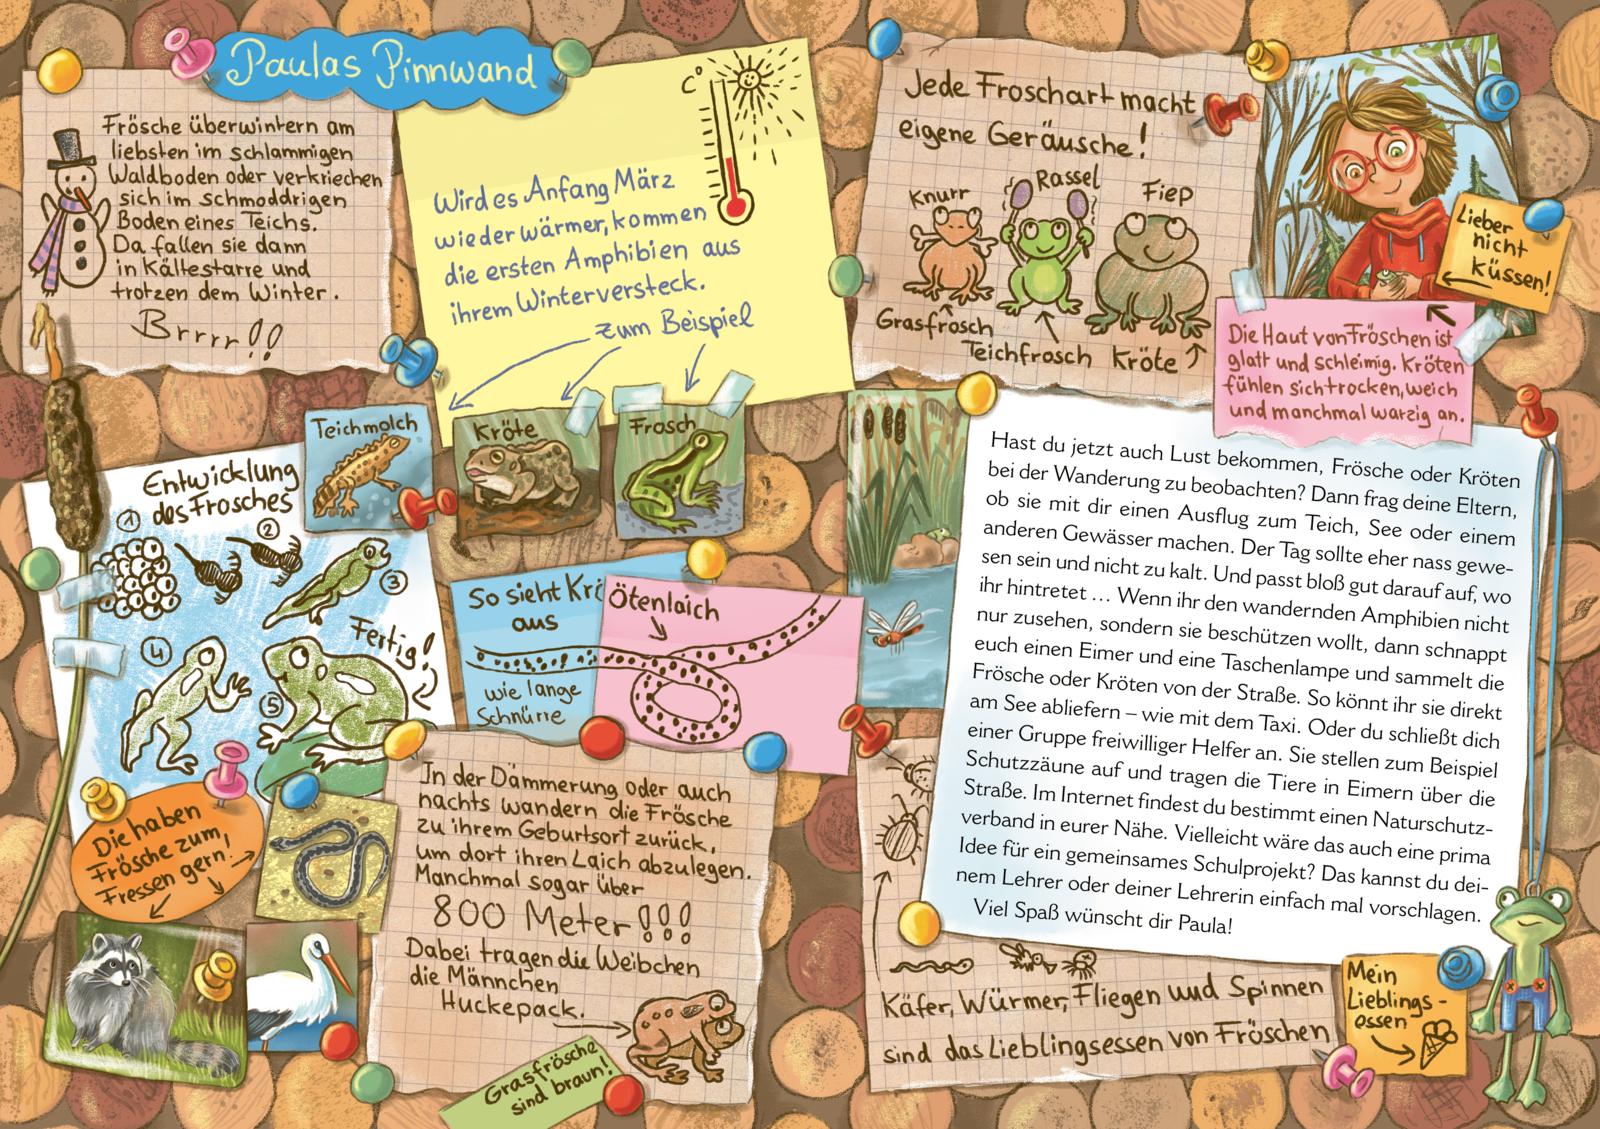 Paulas Pinnwand
Frösche überwintern am
liebsten im schlammigen
Waldboden oder verkriechen
sich im schmoddrigen
Boden eines Teichs.
Da fallen sie dann
in Kältestarre und
trotzen dem Winter.
Brrrr!!
C°
Wird es Anfang März
wieder wärmer, kommen
die ersten Amphibien aus
ihrem Winterversteck.
zum Beispiel
Teichmolch
Kröte
Frosch
Jede Froschart macht
eigene Geräusche!
Knurr
Rassel
Fiep
Grasfrosch
Teichfrosch
Kröte
Lieber
nicht
küssen!
Die Haut von Fröschen ist
glatt und schleimig. Kröten
fühlen sich trocken, weich
und manchmal warzig an.
Entwicklung
des Frosches
1
2
3
4
5
Fertig!
So sieht Krö
aus
wie lange
Schnürre
Ötenlaich
Die haben
Frösche zum
Fressen gern!
In der Dämmerung oder auch
nachts wandern die Frösche
zu ihrem Geburtsort zurück,
um dort ihren Laich abzulegen.
Manchmal sogar über
800 Meter!!!
Dabei tragen die Weibchen
die Männchen
Huckepack.
Grasfrösche
sind braun!
Hast du jetzt auch Lust bekommen, Frösche oder Kröten
bei der Wanderung zu beobachten? Dann frag deine Eltern,
ob sie mit dir einen Ausflug zum Teich, See oder einem
anderen Gewässer machen. Der Tag sollte eher nass gewe-
sen sein und nicht zu kalt. Und passt bloß gut darauf auf, wo
ihr hintretet … Wenn ihr den wandernden Amphibien nicht
nur zusehen, sondern sie beschützen wollt, dann schnappt
euch einen Eimer und eine Taschenlampe und sammelt die
Frösche oder Kröten von der Straße. So könnt ihr sie direkt
am See abliefern – wie mit dem Taxi. Oder du schließt dich
einer Gruppe freiwilliger Helfer an. Sie stellen zum Beispiel
Schutzzäune auf und tragen die Tiere in Eimern über die
Straße. Im Internet findest du bestimmt einen Naturschutz-
verband in eurer Nähe. Vielleicht wäre das auch eine prima
Idee für ein gemeinsames Schulprojekt? Das kannst du dei-
nem Lehrer oder deiner Lehrerin einfach mal vorschlagen.
Viel Spaß wünscht dir Paula!
Käfer, Würmer, Fliegen und Spinnen
sind das Lieblingsessen von Fröschen
Mein
Lieblings-
essen